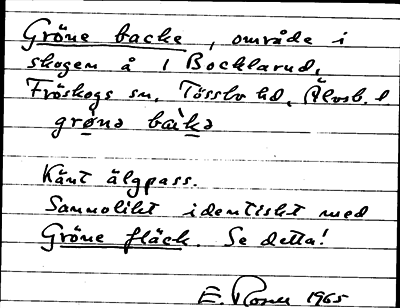 Gröne backe, område i
skogen å 1 Bocklarud,
Fröskogs sn, Tössbo hd, Älvsb. l
grønə bakə
Känt älgpass.
Sannolikt identiskt med
Gröne fläck. Se detta!
E. 1965